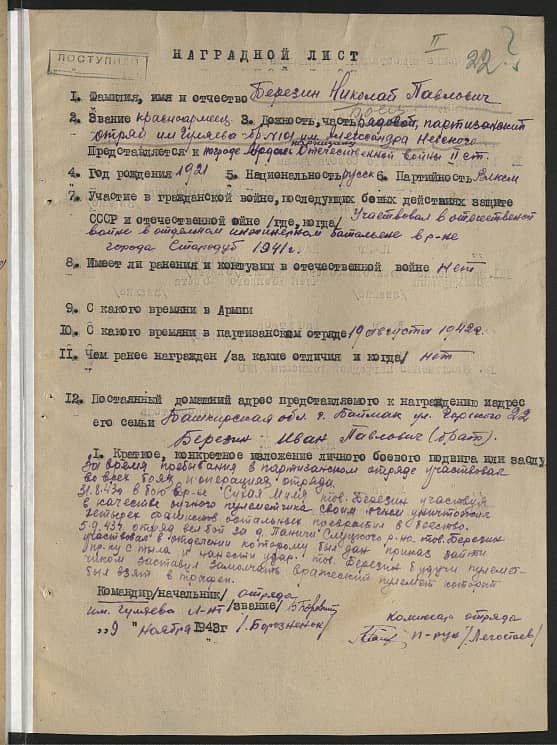 II
22
ПОСТУПИЛО
НАГРАДНОЙ ЛИСТ
1. Фамилия, имя и отчество Березин Николай Павлович
2. Звание красноармеец 3. Должность, часть рядовой, партизанский
отряд им Гуляева бр-100 им. Александра Невского
Представляется к награде Орденом Отечественной войны II ст.
4. Год рождения 1921 5. Национальность русск 6. Партийность Влксм
7. Участие в гражданской войне, последующих боевых действиях защите
СССР и отечественной ойне /где, когда/ Участвовал в отечественной
войне в отдельном инженерном батальоне в р-не
города Стародуб 1941 г.
8. Имеет ли ранения и контузии в отечественной войне Нет
9. С какого времяни в Армии
10. С какого времяни в партизанском отряде 19 августа 1942 г.
11. Чем ранее награжден /за какие отличия и когда/ нет
12. Постаянный домашний адрес представляемого к награждению иадрес
его семьи Башкирская обл. г. Баймак ул. Горского 22
Березин Иван Павлович (брат).
I. Краткое, конкретное изложение личного боевого подвига или заслу
За время пребывания в партизанском отряде участвовал
во всех боях и операциях отряда.
31.8.43г в бою в р-не Сухая Миля тов. Березин участвуя
в качестве ручного пулеметчика своим огнем уничтожил
четырех фашистов остальных превратил в бегство.
5.9.43г. отряд вел бой за д. Паничи Слуцкого р-на тов. Березин
участвовал в отделении которому был дан приказ зайти
пр-ку с тыла и нанести удар. тов. Березин будучи пулемет-
чиком заставил замолчать вражеский пулемет который
был взят в трофеи.
Командир/начальник/ отряда
им. Гуляева Л-нт /звание/
„9 " Ноября 1943г /Борозненок/
комиссар отряда
п-рук /Легостаев/